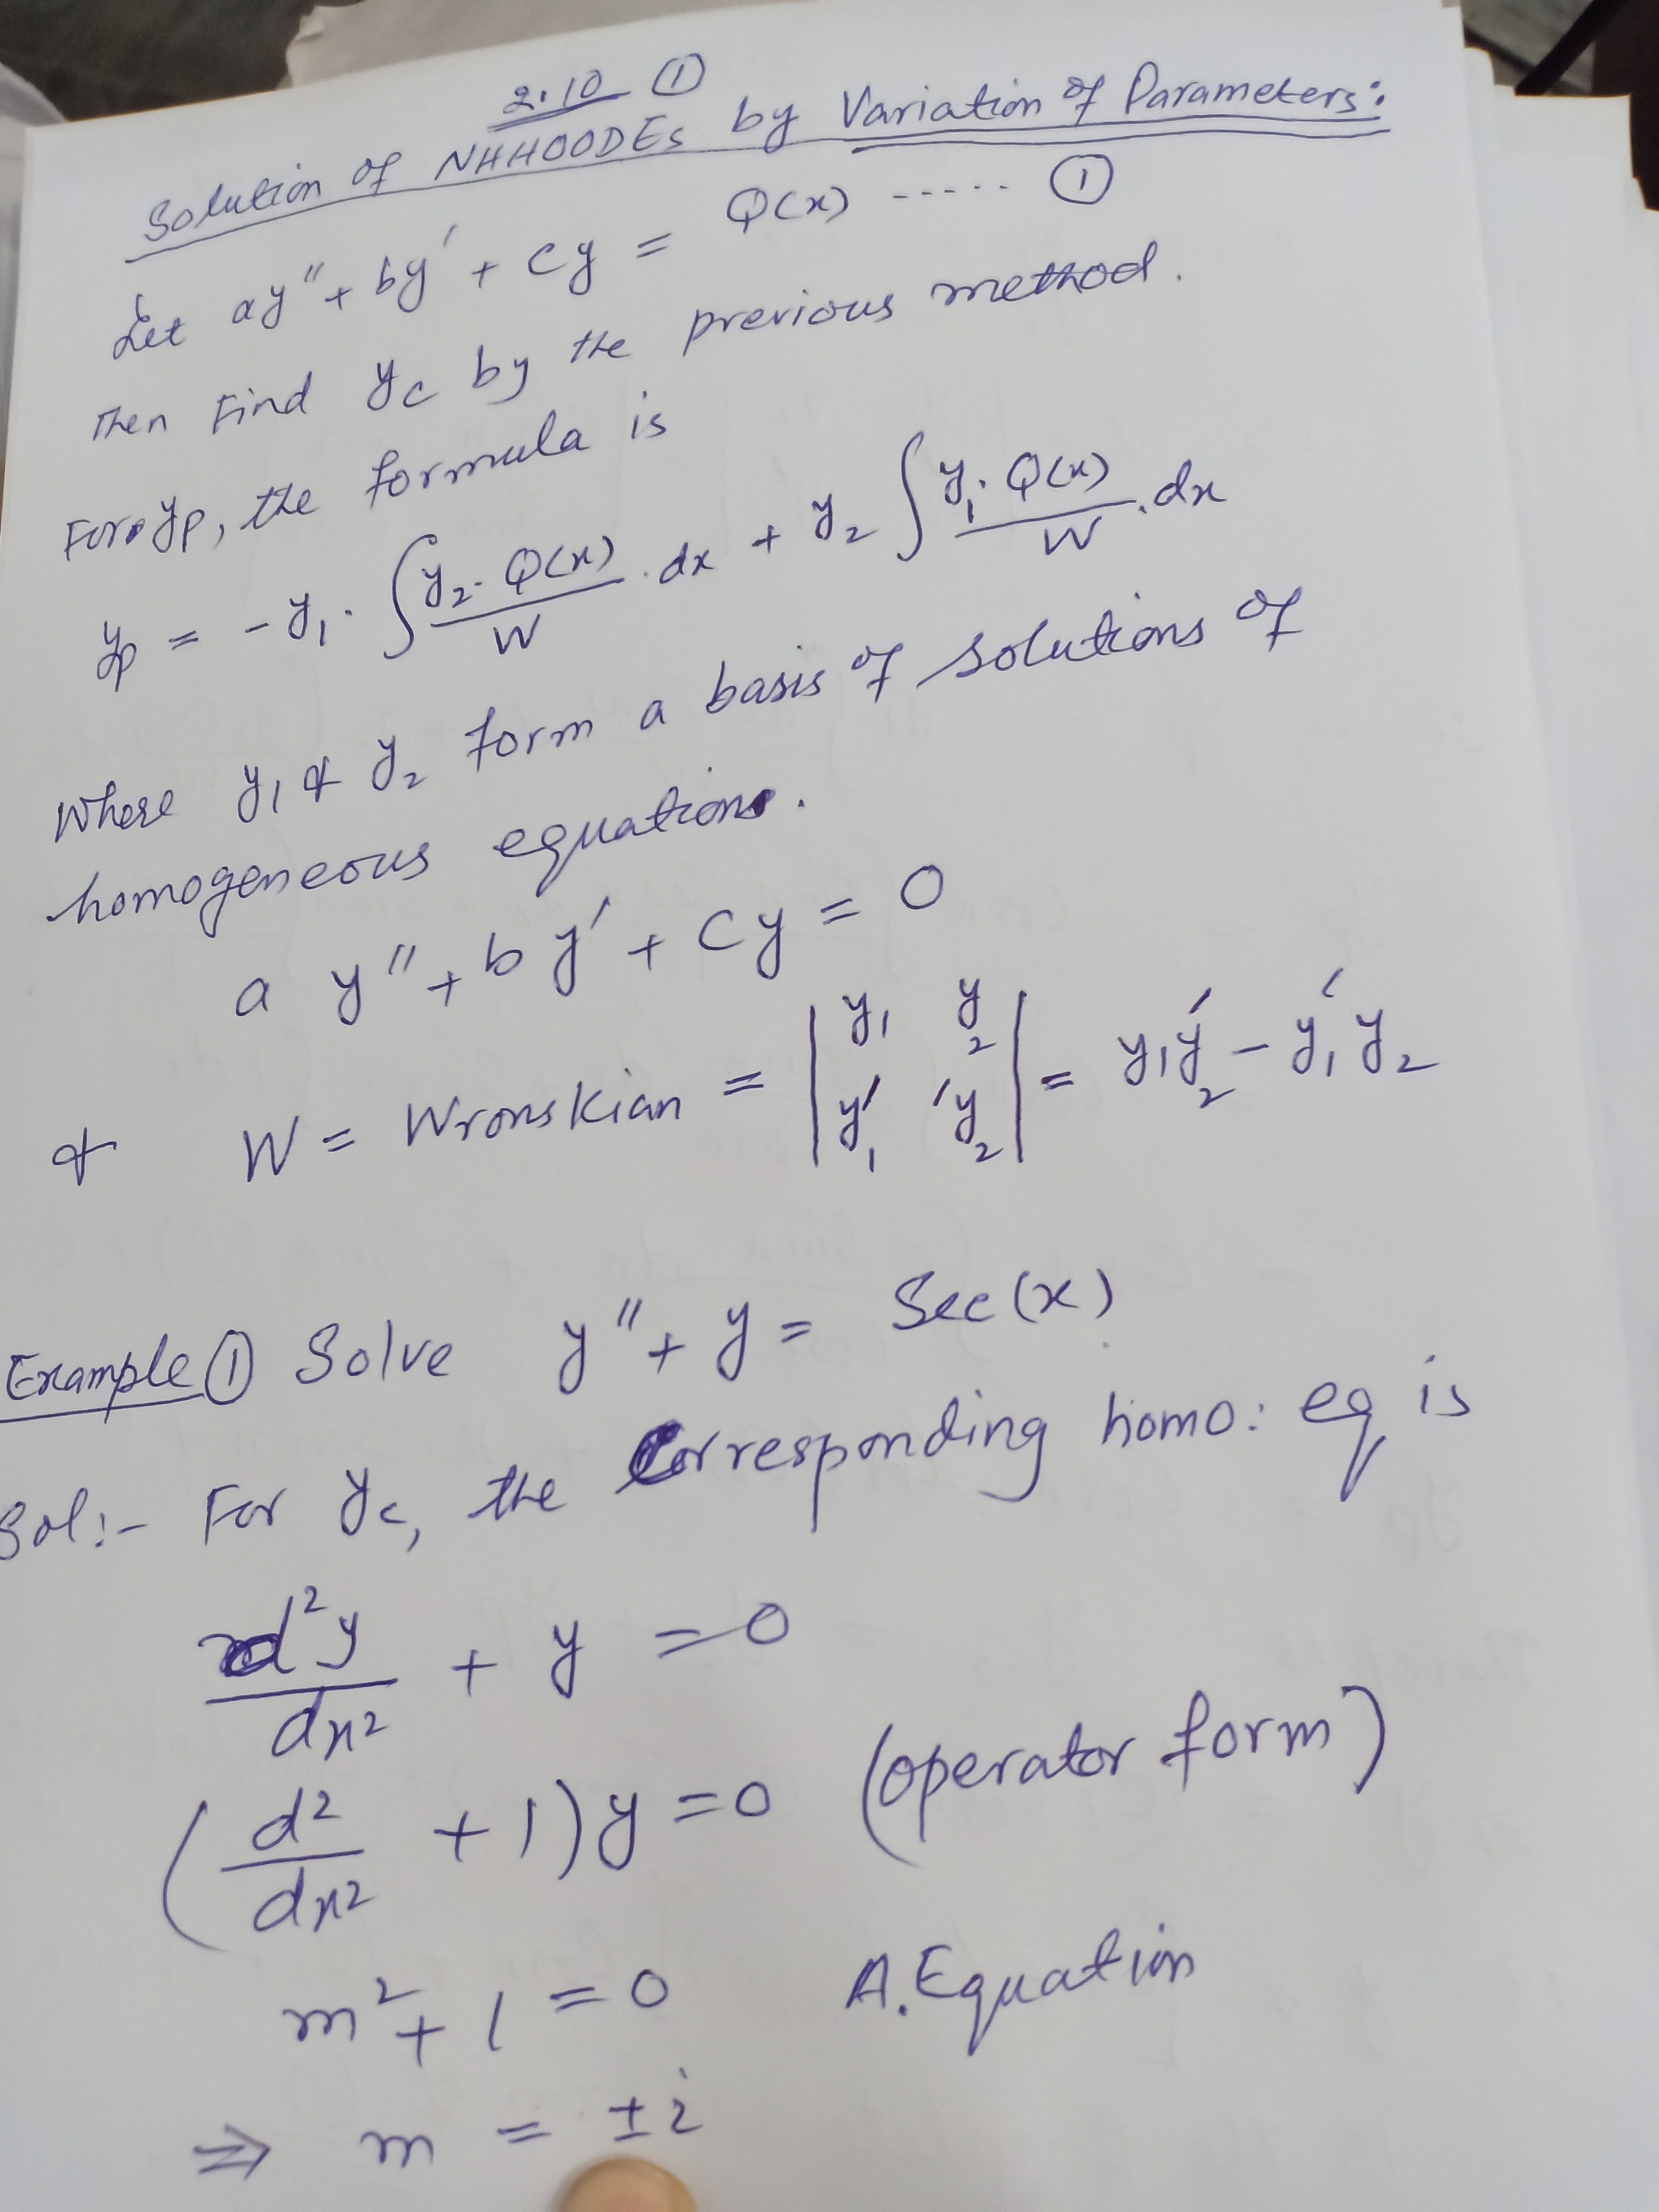 2.10 ①
Solution of NHHOODEs by Variation of Parameters:
Let ay" + by' + cy = Q(x) ----- ①
Then Find yc by the previous method.
For yp, the formula is
yp = - y₁ . ∫ y₂ . Q(x) / W . dx + y₂ ∫ y₁ . Q(x) / W . dx
Where y₁ & y₂ form a basis of solutions of
homogeneous equations.
a y" + b y' + cy = 0
& W = Wronskian = | y₁ y₂ ; y₁' 'y₂ | = y₁y₂' - y₁'y₂
Example ① Solve y" + y = Sec(x)
Sol:- For yc, the Corresponding homo: eq is
d²y/dx² + y = 0
(d²/dx² + 1)y = 0 (operator form)
m² + 1 = 0 A.Equation
⇒ m = ± i